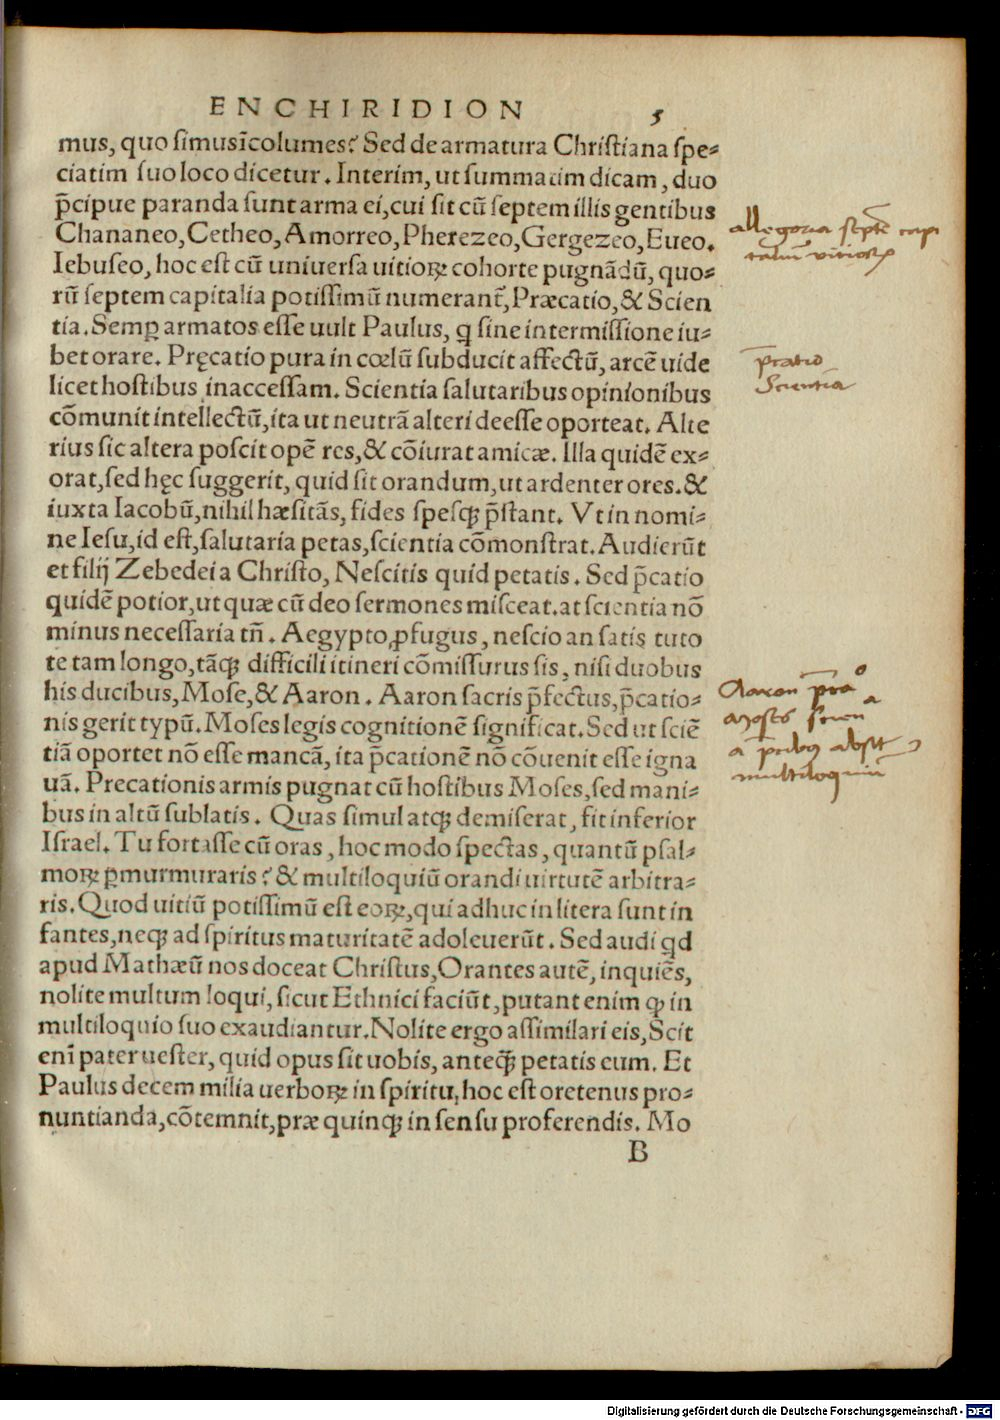 ENCHIRIDION
5
mus, quo simus īcolumes? Sed de armatura Christiana spe⸗
ciatim suo loco dicetur. Interim, ut summatim dicam, duo
p̄cipue paranda sunt arma ei, cui sit cū septem illis gentibus
Chananeo, Cetheo, Amorreo, Pherezeo, Gergezeo, Eueo.
Iebuseo, hoc est cū uniuersa uitioꝝ cohorte pugnādū, quo⸗
rū septem capitalia potissimū numerant᷑, Præcatio, & Scien
tia. Semꝑ armatos esse uult Paulus, q sine intermissione iu⸗
bet orare. Pręcatio pura in cœlū subducit affectū, arcē uide
licet hostibus inaccessam. Scientia salutaribus opinionibus
cōmunit intellectū, ita ut neutrā alteri deesse oporteat. Alte
rius sic altera poscit opē res, & cōiurat amicæ. Illa quidē ex⸗
orat, sed hęc suggerit, quid sit orandum, ut ardenter ores. &
iuxta Iacobū, nihil hæsitās, fides spesqꝫ p̄stant. Vt in nomi⸗
ne Iesu, id est, salutaria petas, scientia cōmonstrat. Audierūt
et filij Zebedei a Christo, Nescitis quid petatis. Sed p̄catio
quidē potior, ut quæ cū deo sermones misceat. at scientia nō
minus necessaria tn̄. Aegypto ꝓfugus, nescio an satis tuto
te tam longo, tāqꝫ difficili itineri cōmissurus sis, nisi duobus
his ducibus, Mose, & Aaron. Aaron sacris p̄fectus, p̄catio⸗
nis gerit typū. Moses legis cognitionē significat. Sed ut sciē
tiā oportet nō esse mancā, ita p̄cationē nō cōuenit esse igna
uā. Precationis armis pugnat cū hostibus Moses, sed mani⸗
bus in altū sublatis. Quas simul atqꝫ demiserat, fit inferior
Israel. Tu fortasse cū oras, hoc modo spectas, quantū psal⸗
moꝝ ꝑmurmuraris? & multiloquiū orandi uirtutē arbitra⸗
ris. Quod uitiū potissimū est eoꝝ, qui adhuc in litera sunt in
fantes, neqꝫ ad spiritus maturitatē adoleuerūt. Sed audi qd
apud Mathæū nos doceat Christus, Orantes autē, inquiēs,
nolite multum loqui, sicut Ethnici faciūt, putant enim qꝫ in
multiloquio suo exaudiantur. Nolite ergo assimilari eis, Scit
enī pater uester, quid opus sit uobis, anteqꝫ̄ petatis eum. Et
Paulus decem milia uerboꝝ in spiritu, hoc est oretenus pro⸗
nuntianda, cōtemnit, præ quinqꝫ in sensu proferendis. Mo
B
allegoria septē capi
taliū vitioꝝ
p̄catio
Scientia
Aaron
a p̄cibꝰ absit
multiloquiū
Digitalisierung gefördert durch die Deutsche Forschungsgemeinschaft - DFG